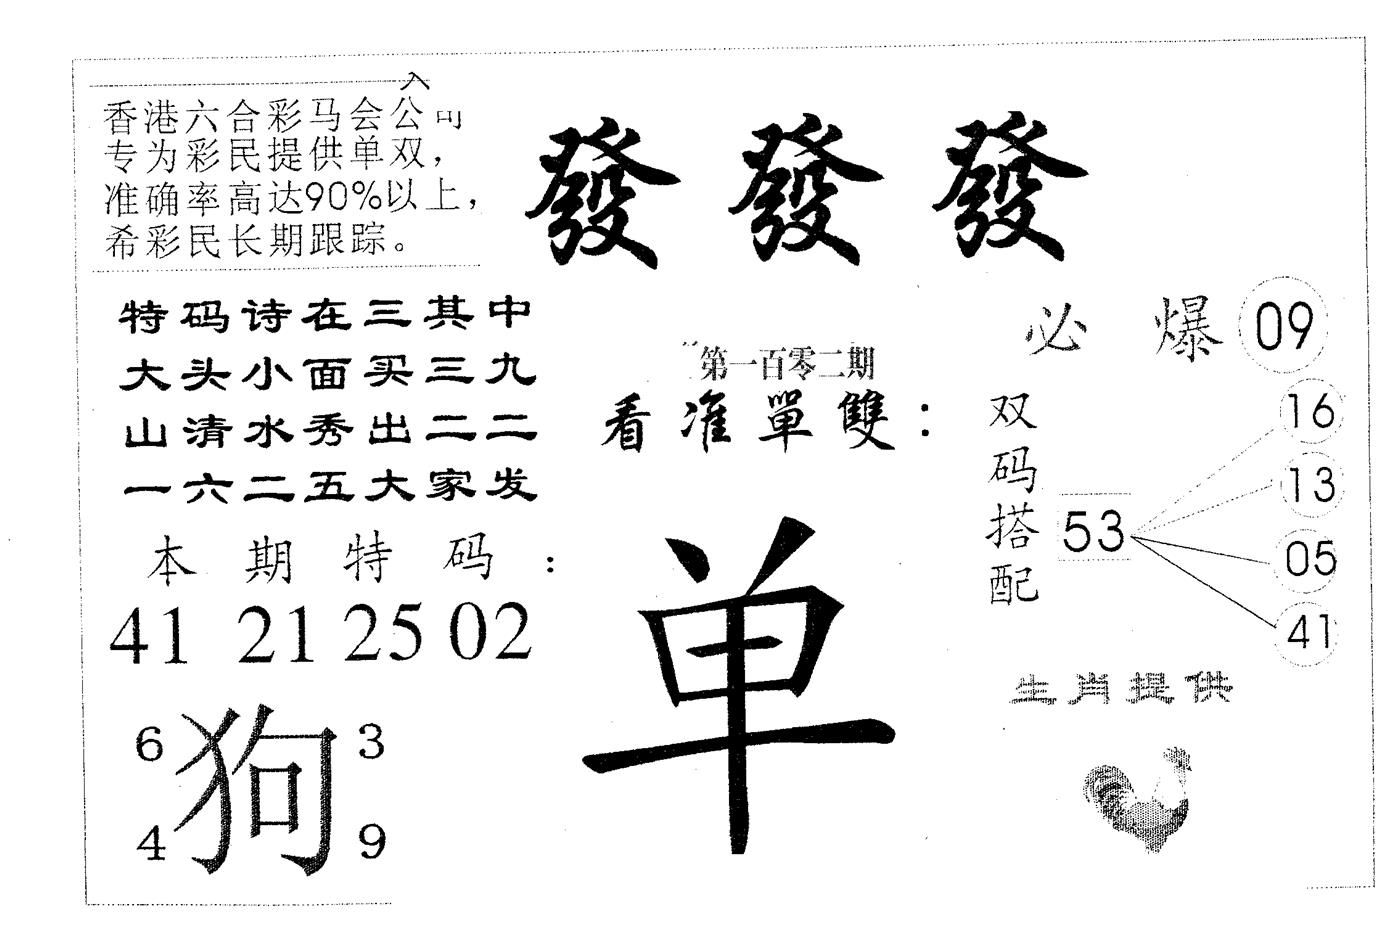 香港六合彩马会公司
专为彩民提供单双，
准确率高达90%以上，
希彩民长期跟踪。
發 發 發
特码诗在三其中
大头小面买三九
山清水秀出二二
一六二五大家发
本期特码：
41 21 25 02
6 狗 3
4 9
第一百零二期
看准單雙：
单
必爆 09
双码搭配
53
16
13
05
41
生肖提供